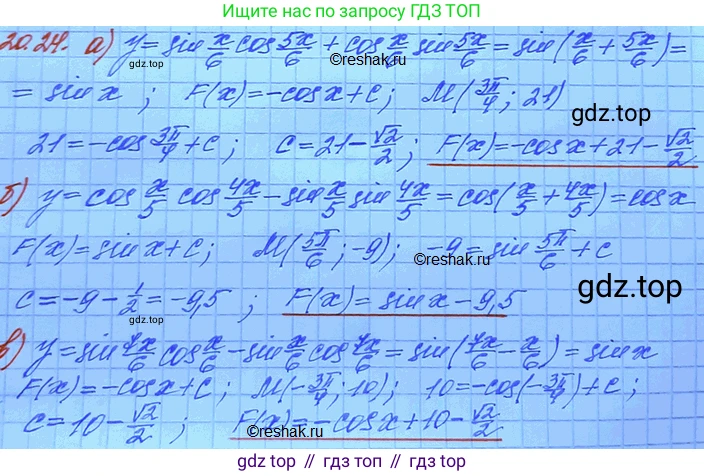 Ищите нас по запросу
ГДЗ ТОП
20.24. а) y = sin x/6 cos 5x/6 + cos x/6 sin 5x/6 = sin(x/6 + 5x/6) =
gdz.top ©reshak.ru
= sin x ; F(x) = -cos x + c ; M(3π/4 ; 21)
gdz.top
21 = -cos 3π/4 + c ; c = 21 - √2/2 ; F(x) = -cos x + 21 - √2/2
б) y = cos x/5 cos 4x/5 - sin x/5 sin 4x/5 = cos(x/5 + 4x/5) = cos x
©reshak.ru
F(x) = sin x + c ; M(5π/6 ; -9) ; -9 = sin 5π/6 + c
gdz.top
c = -9 - 1/2 = -9,5 ; F(x) = sin x - 9,5
gdz.top
в) y = sin 7x/6 cos x/6 - sin x/6 cos 7x/6 = sin(7x/6 - x/6) = sin x
F(x) = -cos x + c ; M(-3π/4 ; 10) ; 10 = -cos(-3π/4) + c ;
c = 10 - √2/2 ; F(x) = -cos x + 10 - √2/2
©reshak.ru
gdz.top // гдз топ // gdz.top